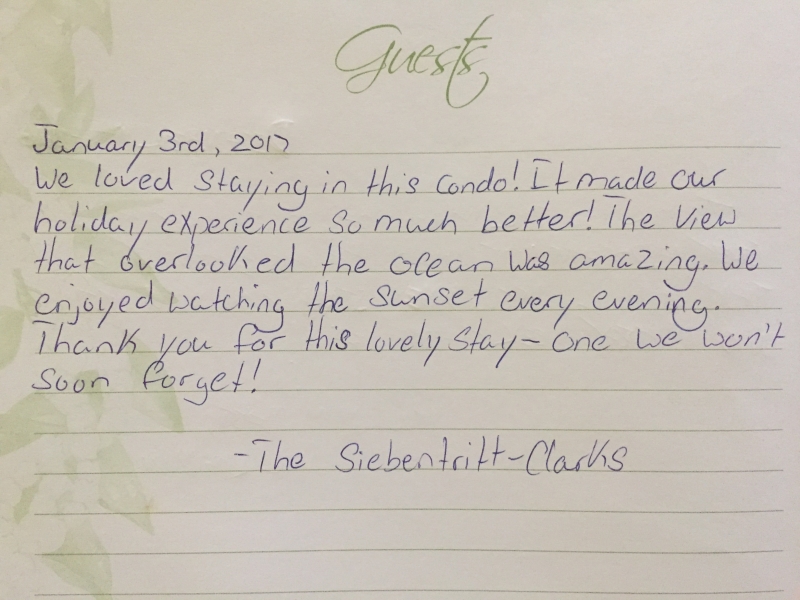 Guests
January 3rd, 2017
We loved staying in this condo! It made our
holiday experience so much better! The view
that overlooked the ocean was amazing. We
enjoyed watching the sunset every evening.
Thank you for this lovely stay - one we won't
soon forget!
- The Siebentritt-Clarks